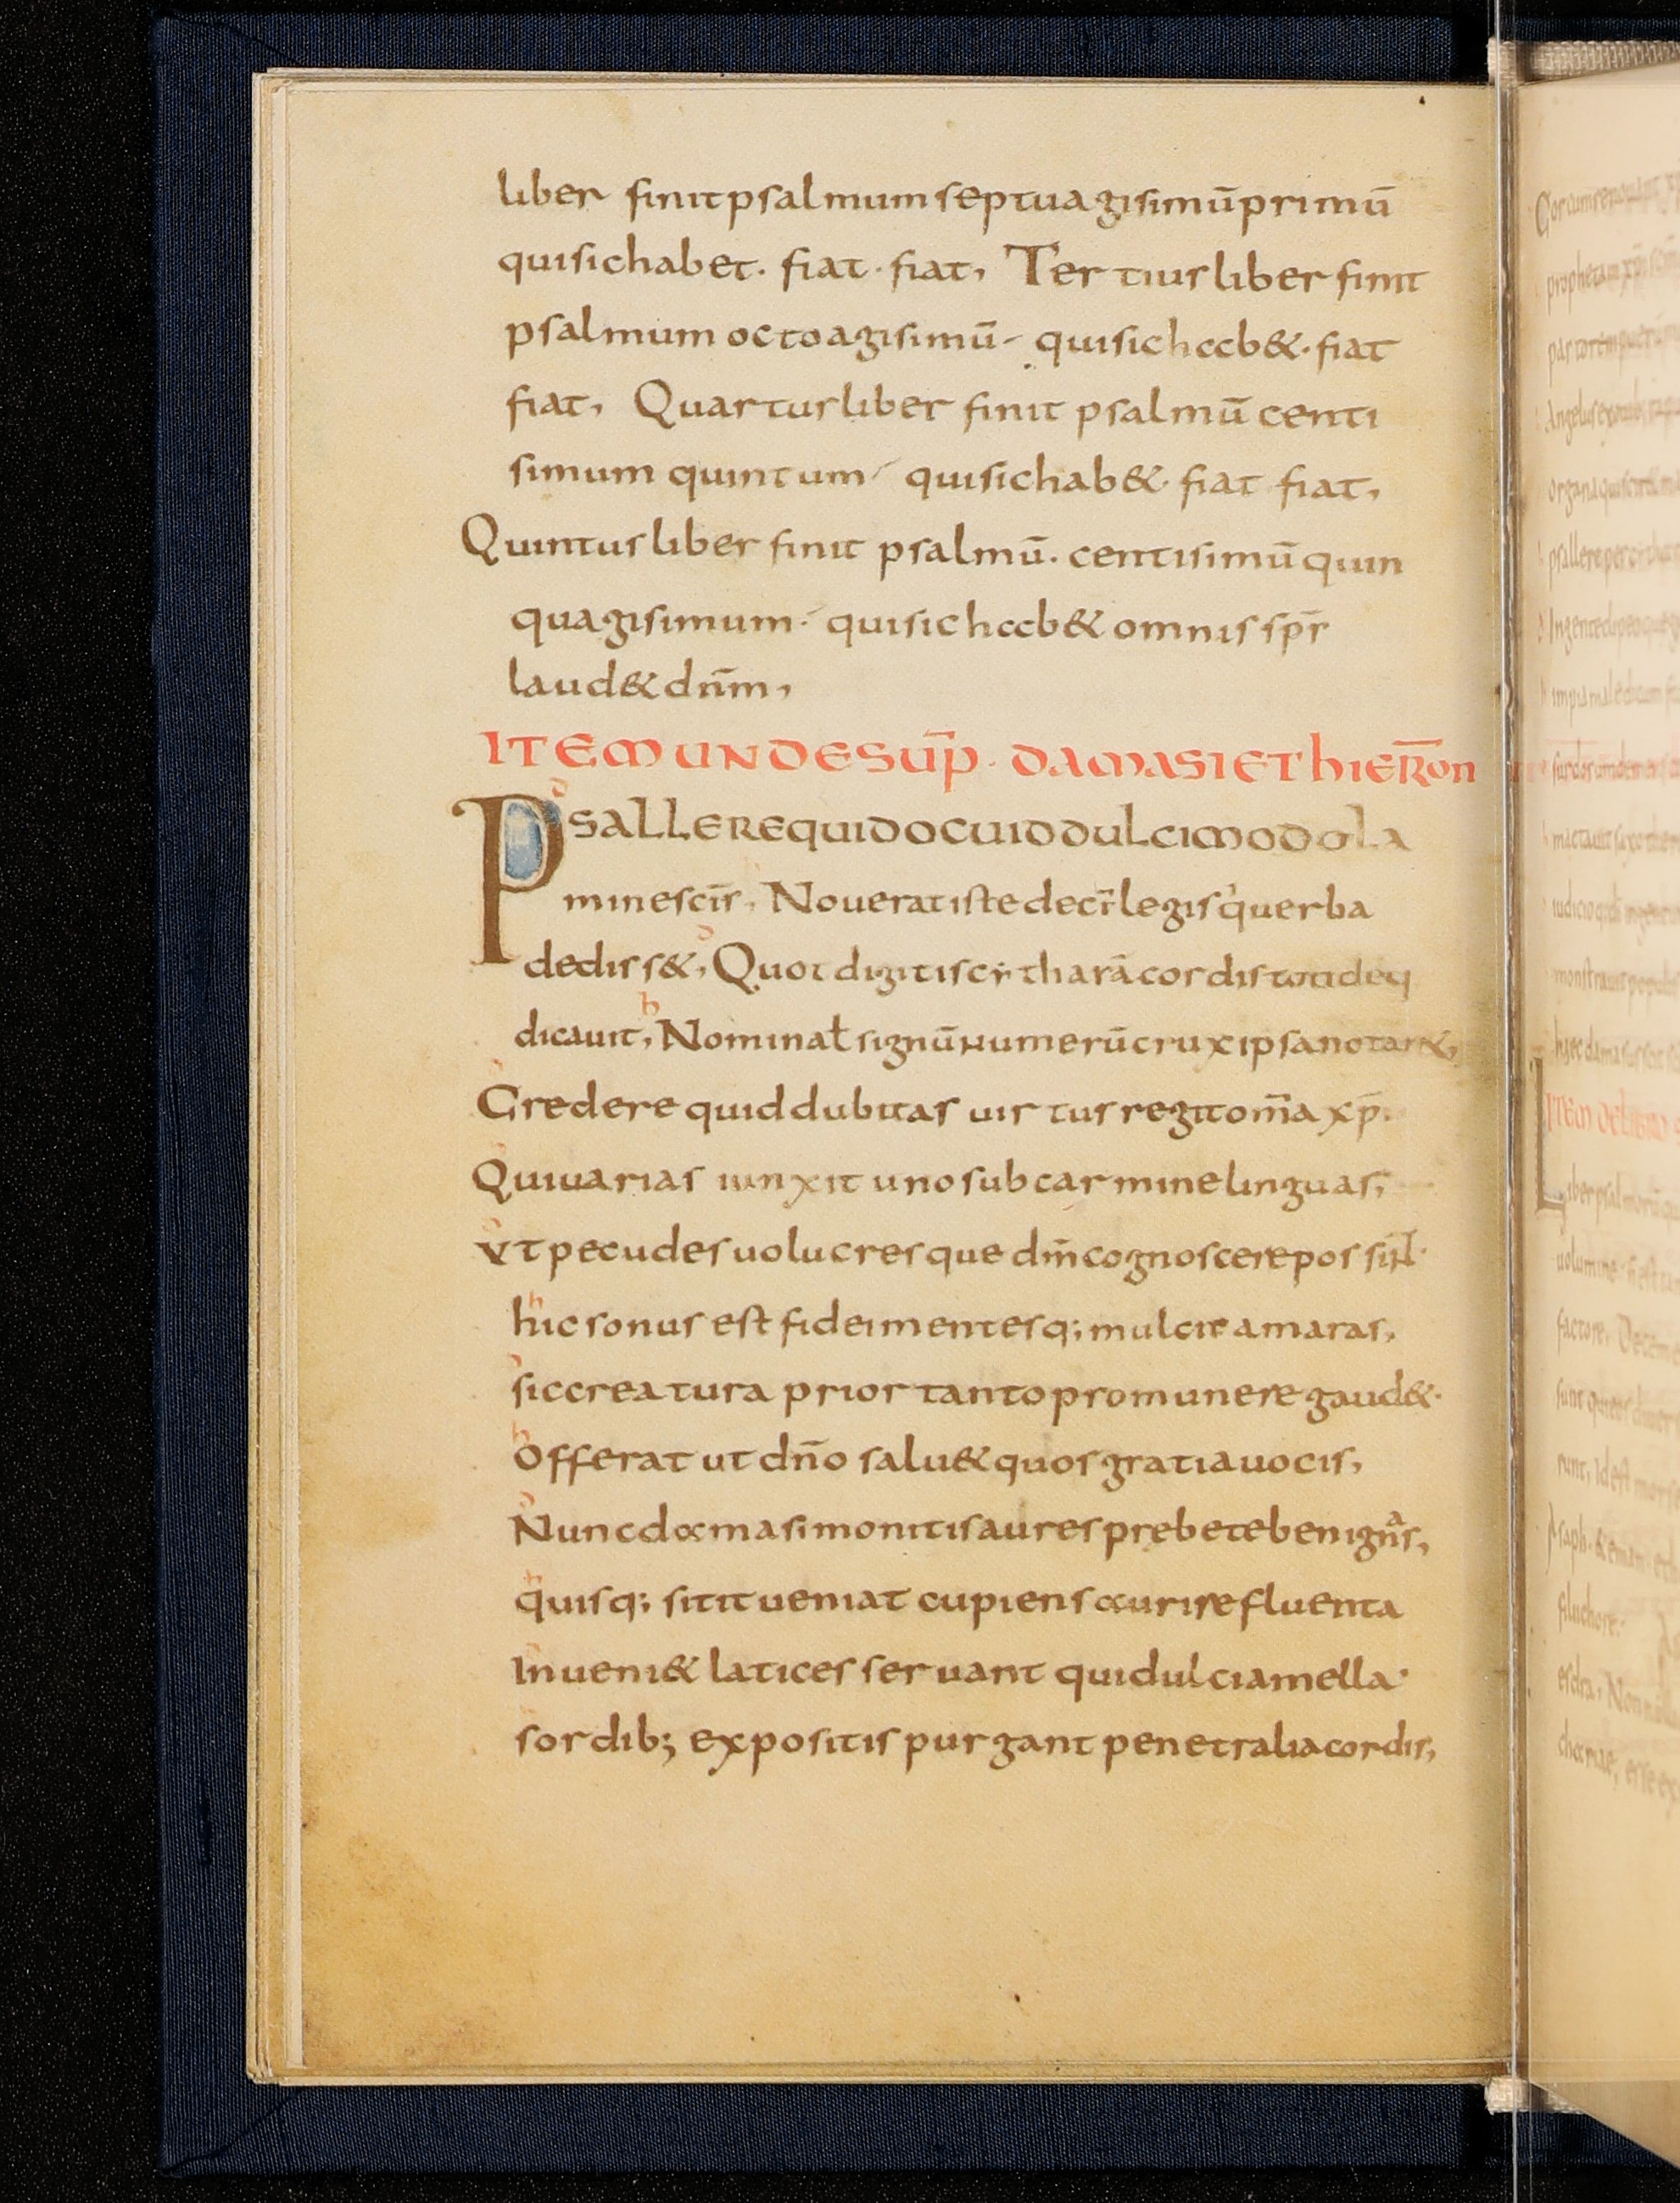 liber finit psalmum septuagisimū primū
qui sic habet. fiat. fiat, Tertius liber finit
psalmum octoagisimū qui sic hab&. fiat
fiat, Quartus liber finit psalmū centi
simum quintum qui sic hab&. fiat fiat,
Quintus liber finit psalmū. centisimū quin
quagisimum. qui sic hab& omnis spr̄
laud& dn̄m,
ITEM UNDE SUP̄. DAMASI ET hIER̄oN
PSALLERE QUI DOCUID DULCI MODOLA
mine scīs, Noverat iste decē legis q verba
dediss&, Quot digitis cytharā cordis totideq
dicauit, Nominat signū numerū crux ipsa notar&,
Credere quid dubitas uirtus regit om̄a xp̄.
Qui uarias iunxit uno sub carmine linguas,
Vt pecudes uolucresque dm̄ cognoscere possint.
hic sonus est fidei mentesq; mulcit amaras,
sic creatura prior tanto pro munere gaud&.
Offerat ut dn̄o salu& quos gratia uocis,
Nunc damasi monitis aures prebete benignas,
quisq; sitit ueniat cupiens aurire fluenta
Inueni& latices seruant qui dulcia mella
sordib; expositis purgant penetralia cordis,